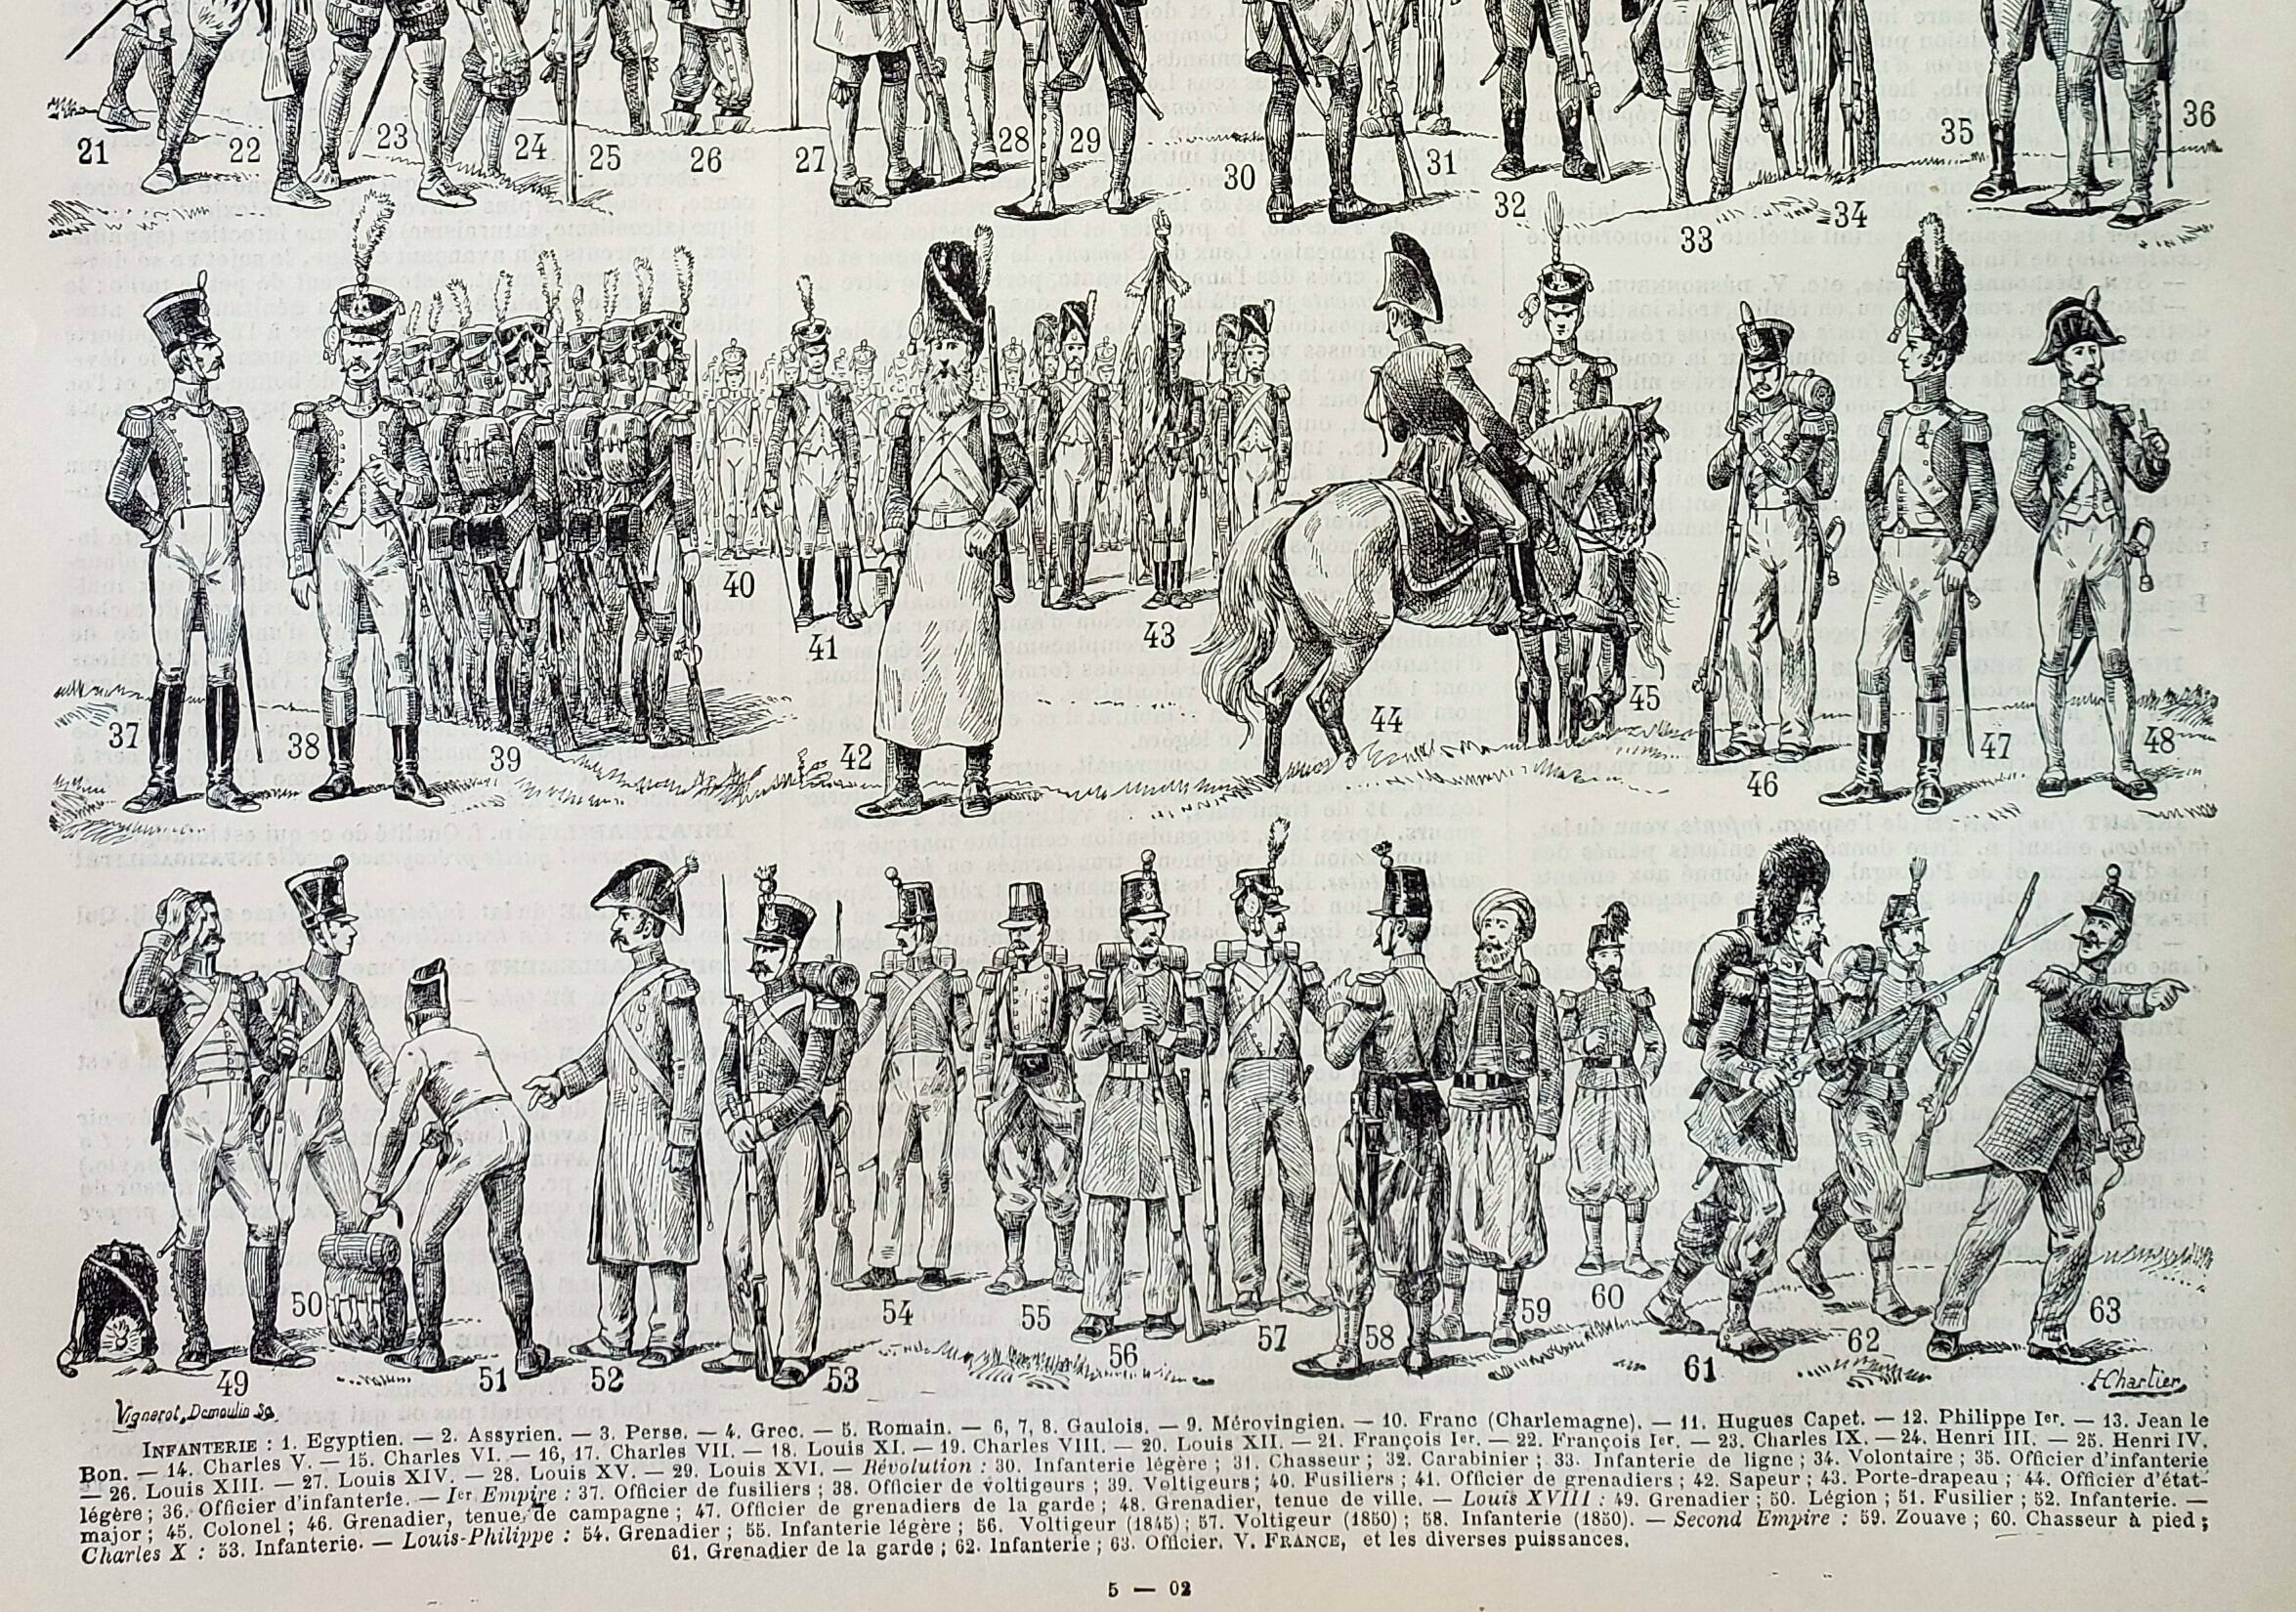 21 22 23 24 25 26 27 28 29 30 31 32 33 34 35 36
37 38 39 40 41 42 43 44 45 46 47 48
49 50 51 52 53 54 55 56 57 58 59 60 61 62 63
Vignerot, Demoulin Sc.
H Chartier
INFANTERIE : 1. Egyptien. — 2. Assyrien. — 3. Perse. — 4. Grec. — 5. Romain. — 6, 7, 8. Gaulois. — 9. Mérovingien. — 10. Franc (Charlemagne). — 11. Hugues Capet. — 12. Philippe Ier. — 13. Jean le
Bon. — 14. Charles V. — 15. Charles VI. — 16, 17. Charles VII. — 18. Louis XI. — 19. Charles VIII. — 20. Louis XII. — 21. François Ier. — 22. François Ier. — 23. Charles IX. — 24. Henri III. — 25. Henri IV.
— 26. Louis XIII. — 27. Louis XIV. — 28. Louis XV. — 29. Louis XVI. — Révolution : 30. Infanterie légère ; 31. Chasseur ; 32. Carabinier ; 33. Infanterie de ligne ; 34. Volontaire ; 35. Officier d'infanterie
légère ; 36. Officier d'infanterie. — Ier Empire : 37. Officier de fusiliers ; 38. Officier de voltigeurs ; 39. Voltigeurs ; 40. Fusiliers ; 41. Officier de grenadiers ; 42. Sapeur ; 43. Porte-drapeau ; 44. Officier d'état-
major ; 45. Colonel ; 46. Grenadier, tenue de campagne ; 47. Officier de grenadiers de la garde ; 48. Grenadier, tenue de ville. — Louis XVIII : 49. Grenadier ; 50. Légion ; 51. Fusilier ; 52. Infanterie. —
Charles X : 53. Infanterie. — Louis-Philippe : 54. Grenadier ; 55. Infanterie légère ; 56. Voltigeur (1845) ; 57. Voltigeur (1850) ; 58. Infanterie (1850). — Second Empire : 59. Zouave ; 60. Chasseur à pied ;
61. Grenadier de la garde ; 62. Infanterie ; 63. Officier. V. FRANCE, et les diverses puissances.
5 — 02